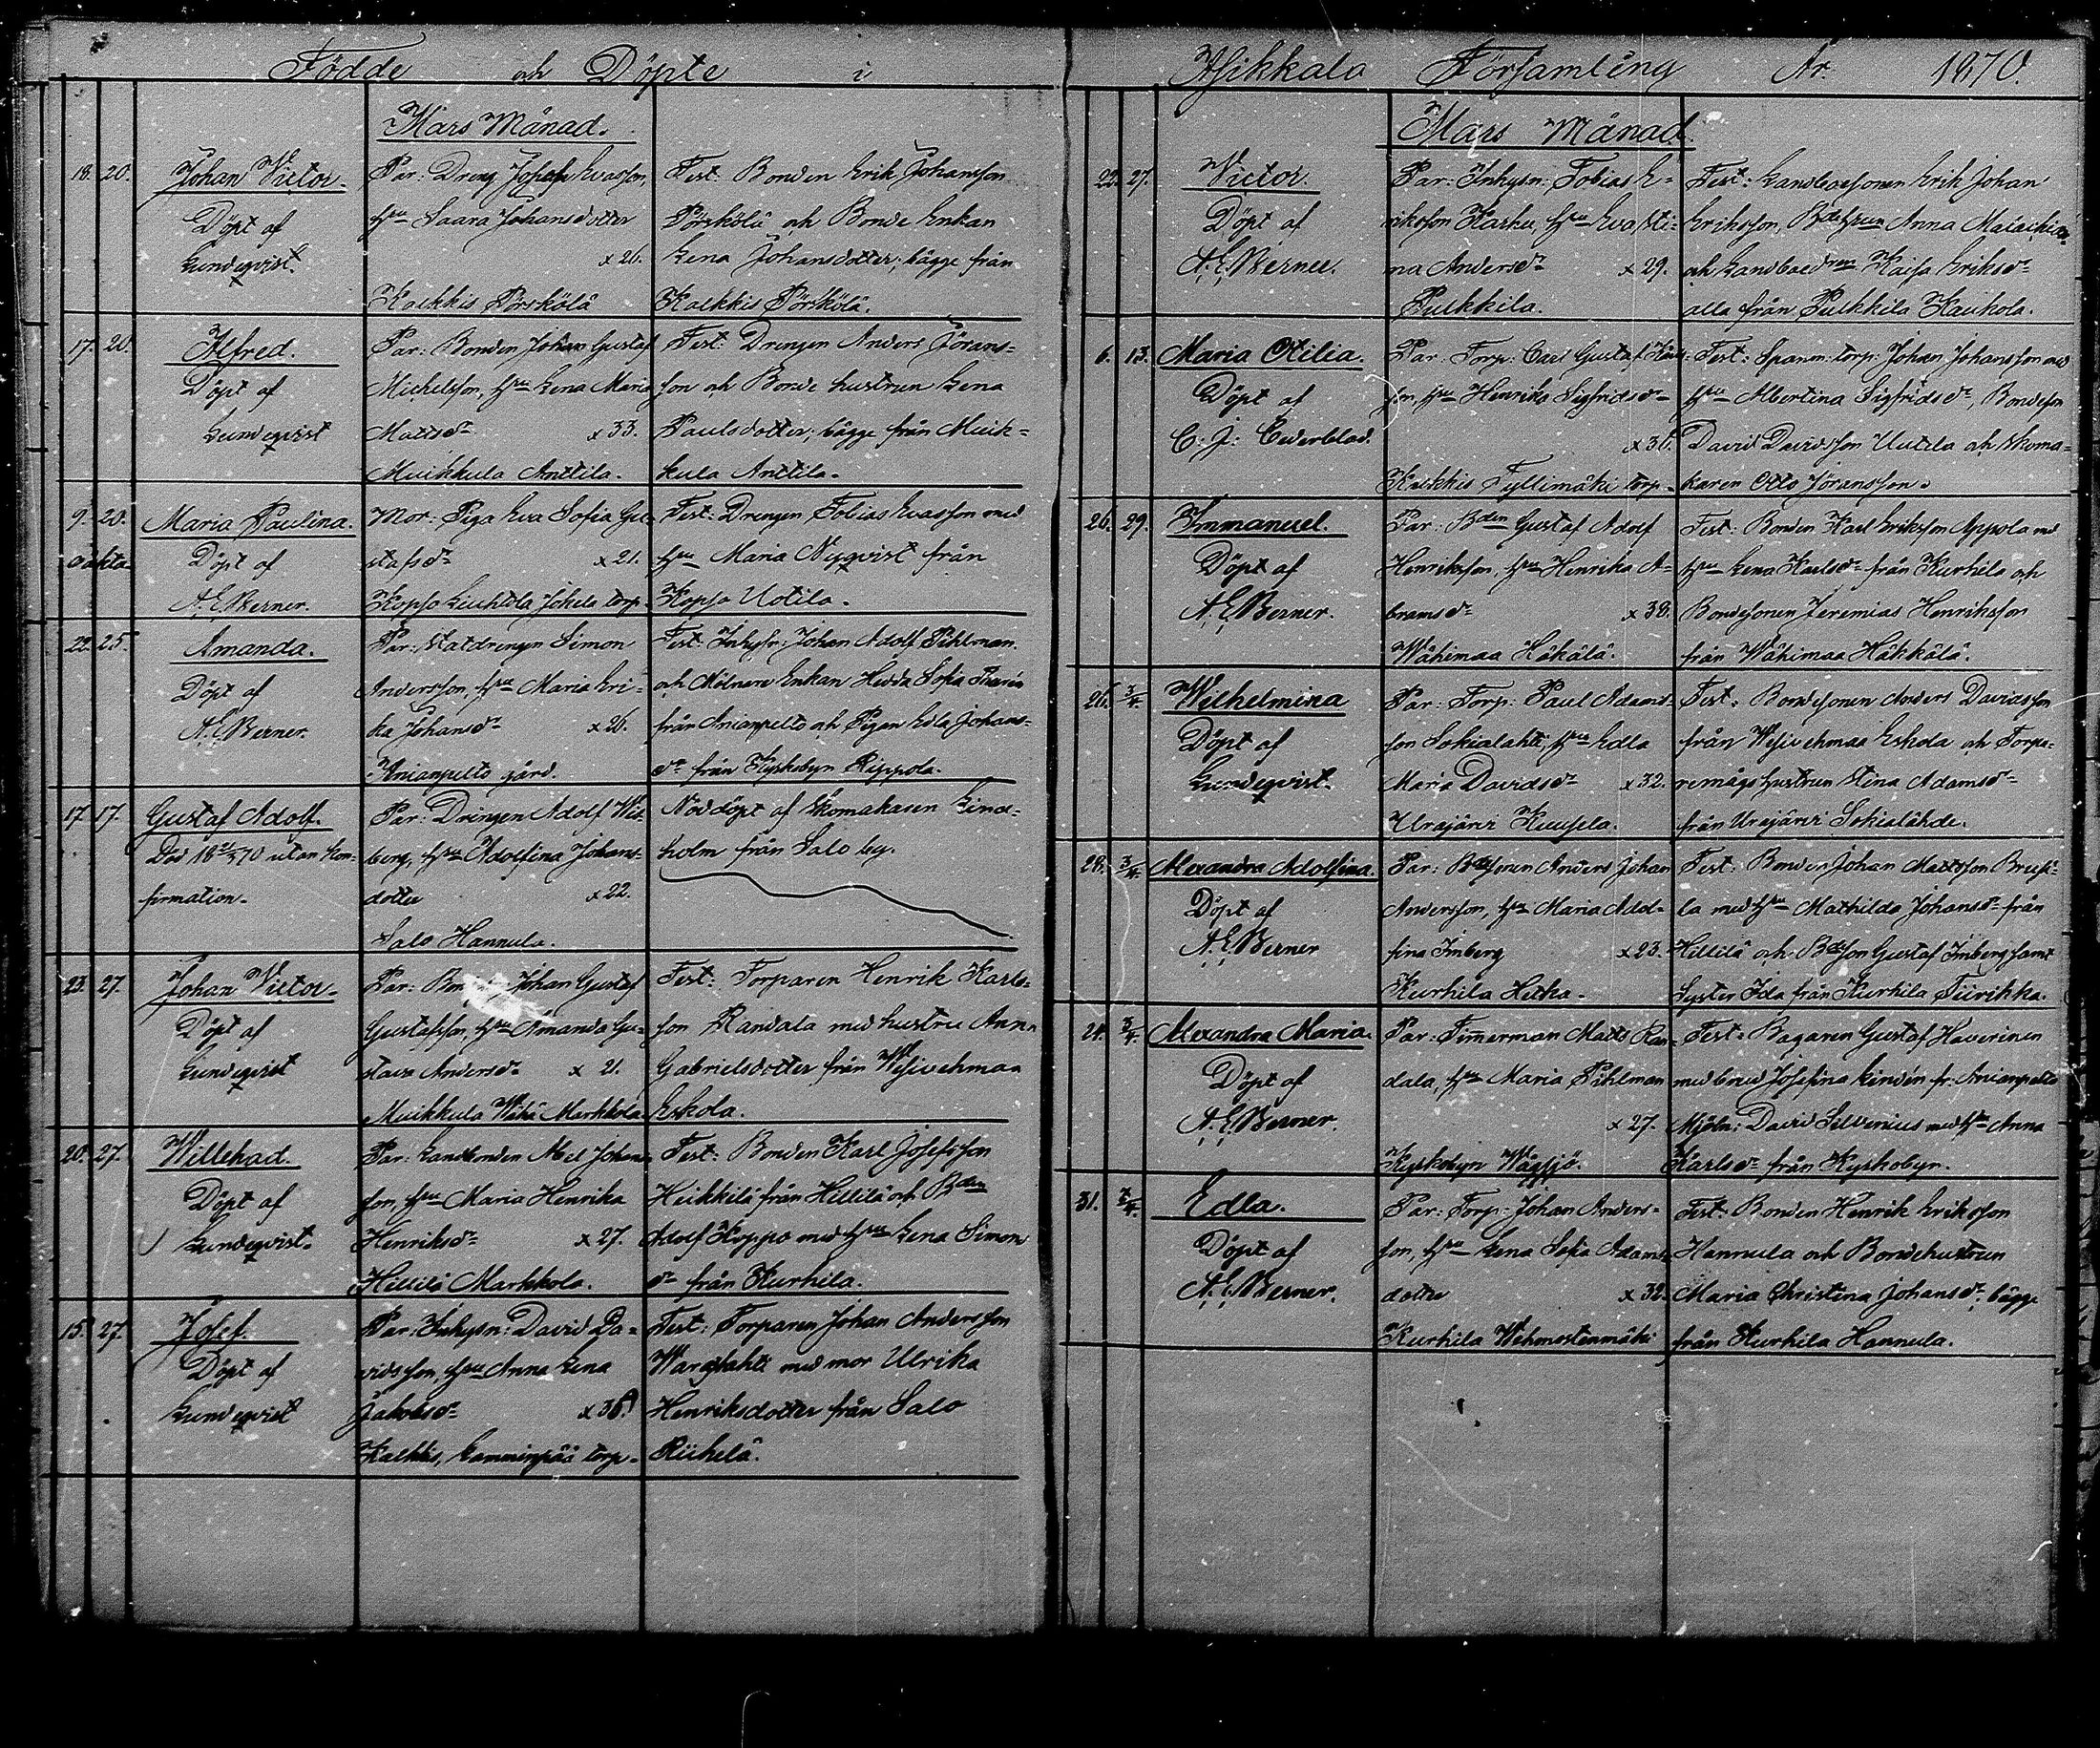 Födde och Döpte i
Mars Månad.
18. 20. Johan Victor.
Döpt af
Lundeqvist.
Par: Dreng Johan Evasson,
hru Saara Johansdotter
x 26.
Kalkkis Pörskölä
Test: Bonden Erik Johansson
Pörskölä och Bonde Enkan
Lena Johansdotter; bägge från
Kalkkis Pörskölä.
17. 20. Alfred.
Döpt af
Lundeqvist
Par: Bonden Johan Gustaf
Michelsson, hru Lena Maria
Mattsdr x 33.
Muikkula Anttila.
Test: Drengen Anders Jörans-
son och Bonde hustrun Lena
Paulsdotter; bägge från Muik-
kula Anttila.
9. 20. Maria Paulina.
oäkta Döpt af
A. E. Berner.
Mor: Piga Eva Sofia Gu-
stafsdr x 21.
Kopso Liuhtola Jokela torp.
Test: Drengen Tobias Evasson med
hru Maria Nyqvist från
Kopso Uotila.
22. 25. Amanda.
Döpt af
A. E. Berner.
Par: Statdrengen Simon
Andersson, hru Maria Eri-
ka Johansdr x 26.
Anianpelto gård.
Test: Inhysn: Johan Adolf Pihlman
och Mölnare Enkan Hedda Sofia
från Anianpelto och Pigan Edla Johans-
dr från Kyrkobyn Rippola.
17. 17. Gustaf Adolf.
Död 18 70 utan kon-
firmation.
Par: Drengen Adolf Wit-
berg, hru Adolfina Johans-
dotter x 22.
Salo Hannula.
Nöddöpt af Skomakaren Lind-
holm från Salo by.
23. 27. Johan Victor.
Döpt af
Lundeqvist
Par: Johan Gustaf
Gustafsson, hru Amanda Gu-
stava Andersdr x 21.
Muikkula Wähä Markkola
Test: Torparen Henrik Karls-
son Randala med hustru Anna
Gabrielsdotter från Wesivehmaa
Eskola.
20. 27. Willehad.
Döpt af
Lundeqvist.
Par: Landbonden Abel Johans-
son, hru Maria Henrika
Henriksdr x 27.
Hillilä Markkola.
Test: Bonden Karl Josefsson
Heikkilä från Hillilä och Bden
Adolf Hoppo med hru Lena Simons
dr från Kurhila.
15. 27. Josef.
Döpt af
Lundeqvist
Par: Inhysn: David Da-
vidsson, hru Anna Lena
Jakobsdr x 36.
Kalkkis, Lamminpää torp.
Test: Torparen Johan Andersson
med mor Ulrika
Henriksdotter från Salo
Riihelä.
Asikkala Församling År 1870.
Mars Månad
22. 27. Victor.
Döpt af
A. E. Berner.
Par: Inhysn: Tobias E-
riksson Karhu, hru Eva Sti-
na Andersdr x 29.
Pulkkila.
Test: Landboesonen Erik Johan
Eriksson, Bdehrun Anna
och Kaisa Eriksdr
alla från Pulkkila Kaukola.
6. 13. Maria Otilia.
Döpt af
C. J. Cederblad.
Par: Torp: Carl Gustaf
son, hru Henrika Sigfridsdr
x 36.
Kalkkis Tyllimäki torp.
Test: Spanm: torp: Johan Johansson med
hru Albertina Sigfridsdr, Bondeson
David Davidsson Uutela och Skoma-
karen Otto Göransson.
26. 29. Immanuel.
Döpt af
A. E. Berner.
Par: Bden Gustaf Adolf
Henriksson, hru Henrika A-
bramsdr x 38.
Wähimaa Häkälä.
Test: Bonden Karl Eriksson Appola med
hru Lena Karlsdr från Kurhila och
Bondesonen Jeremias Henriksson
från Wähimaa Häkkälä.
26. 3/4. Wilhelmina
Döpt af
Lundeqvist.
Par: Torp: Paul Adams-
son Sokialahti, hru Edla
Maria Davidsdr x 32.
Urajärvi Kuusela.
Test: Bondesonen Anders Davidsson
från Wesivehmaa Eskola och Torpa-
remågs hustrun Stina Adamsdr
från Urajärvi Sokialähde.
28. 3/4. Alexandra Adolfina.
Döpt af
A. E. Berner
Par: Bdesonen Anders Johan
Andersson, hru Maria Adol-
fina Imberg x 23.
Kurhila Heikka.
Test: Bonden Johan Mattsson
la med hru Mathilda Johansdr från
Hillilä och Bdeson Gustaf Imberg samt
Syster Ida från Kurhila Tiirikka.
21. 3/4. Alexandra Maria.
Döpt af
A. E. Berner.
Par: Timerman Matts Ran-
dala, hru Maria Pihlman
x 27.
Kyrkobyn Wägsjö.
Test: Bagaren Gustaf Haverinen
med brud Josefina Lindén fr. Anianpelto
Mjöln: David Silvenius med hru Anna
Karlsdr från Kyrkobyn.
31. 3/4. Edla.
Döpt af
A. E. Berner.
Par: Torp: Johan Anders-
son, hru Lena Sofia Adams-
dotter x 32.
Kurhila Wehmostenmäki
Test: Bonden Henrik Eriksson
Hannula och Bondehustrun
Maria Christina Johansdr; bägge
från Kurhila Hannula.